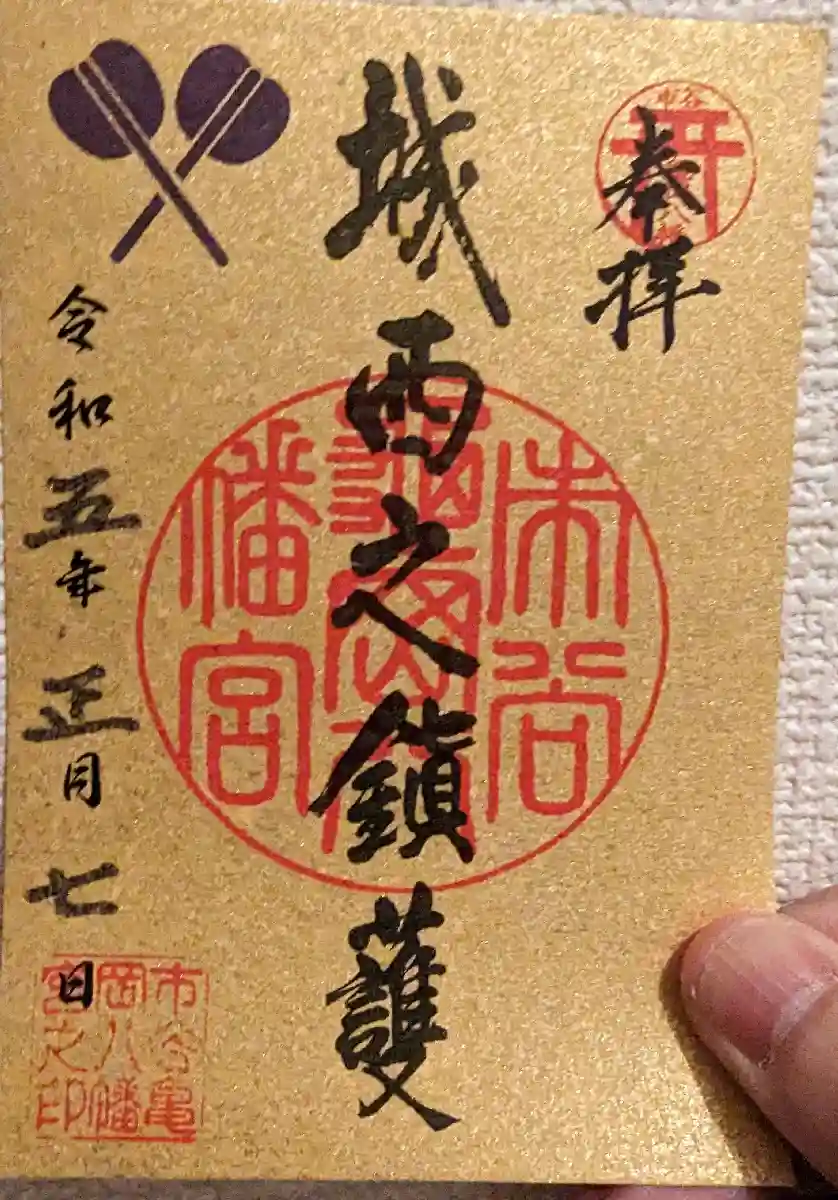 奉拝
城西之鎮護
市谷亀岡八幡宮
令和五年正月七日
市谷亀
岡八幡
宮之印